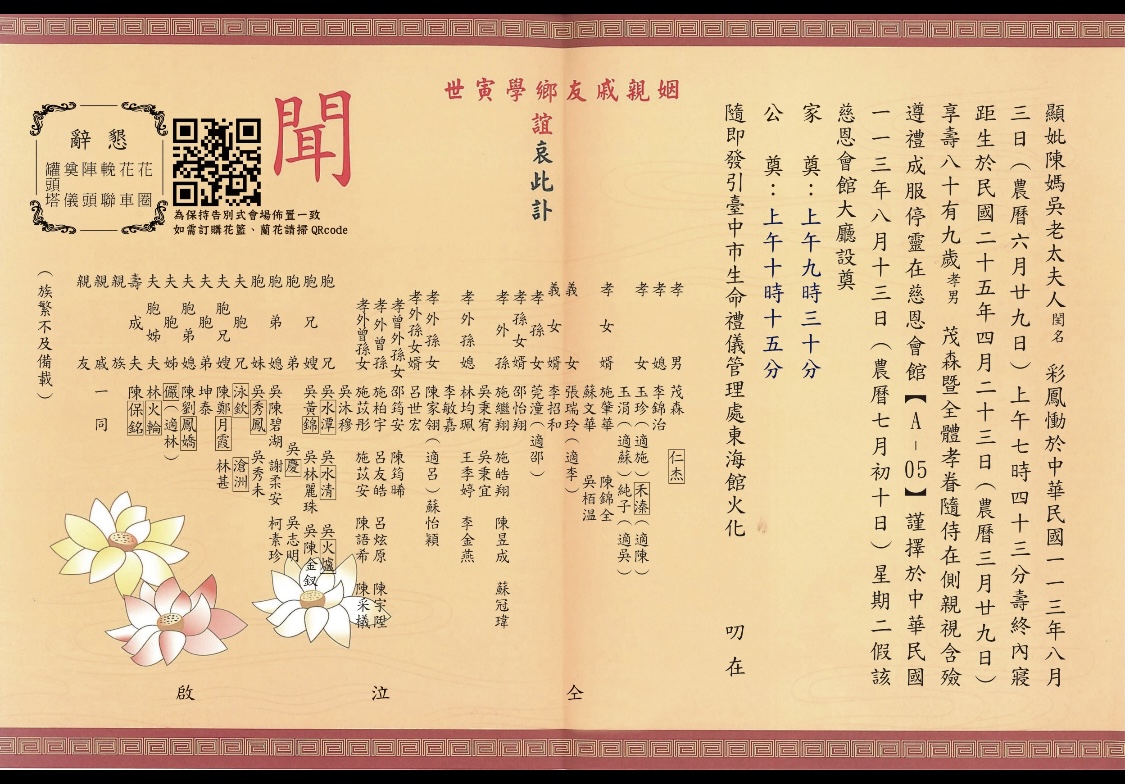 顯妣陳媽吳老太夫人閨名　彩鳳慟於中華民國一一三年八月
三日（農曆六月廿九日）上午七時四十三分壽終內寢
距生於民國二十五年四月二十三日（農曆三月廿九日）
享壽八十有九歲孝男　茂森暨全體孝眷隨侍在側親視含殮
遵禮成服停靈在慈恩會館【A－05】謹擇於中華民國
一一三年八月十三日（農曆七月初十日）星期二假該
慈恩會館大廳設奠
家　奠：上午九時三十分
公　奠：上午十時十五分
隨即發引臺中市生命禮儀管理處東海館火化　叨在
姻親戚友鄉學寅世
誼哀此訃
聞
孝男　茂森　仁杰
孝媳　李錦治
孝女　玉珍（適施）禾溱（適陳）
玉涓（適蘇）純子（適吳）
孝女婿　施肇華　陳錦全
蘇文華　吳栢溫
義女　張瑞玲（適李）
義女婿　李招和
孝孫女　莞潼（適邵）
孝孫女婿　邵怡翔
孝外孫　施繼翔　施皓翔　陳昱成　蘇冠瑋
吳秉宥　吳秉宜
孝外孫媳　林均珮　王李婷　李金燕
李敏嘉
孝外孫女　陳家翎（適呂）蘇怡穎
孝外孫女婿　呂世宏
孝曾外孫女　邵筠安　陳筠晞
孝外曾孫　施柏宇　呂友皓　呂炫原　陳宗陞
孝外曾孫女　施苡彤　施苡安　陳語希　陳采檥
胞兄　吳沐穆
吳水潭　吳水清　吳火爐
胞兄嫂　吳黃錦　吳林麗珠　吳陳金釵
胞弟　吳慶　吳志明
胞弟媳　吳陳碧湖　謝柔安　柯素珍
胞妹　吳秀鳳　吳秀未
夫胞兄　泳欽　滄洲
夫胞兄嫂　陳鄭月霞　林甚
夫胞弟　坤泰
夫胞弟媳　陳劉鳳嬌
夫胞姊　儼（適林）
夫胞姊夫　林火輪
壽成夫　陳保銘
親族
親戚　一同
親友
（族繁不及備載）
仝　泣　啟
懇辭
花圈
花車
輓聯
陣頭
奠儀
罐頭塔
為保持告別式會場佈置一致
如需訂購花籃、蘭花請掃QRcode